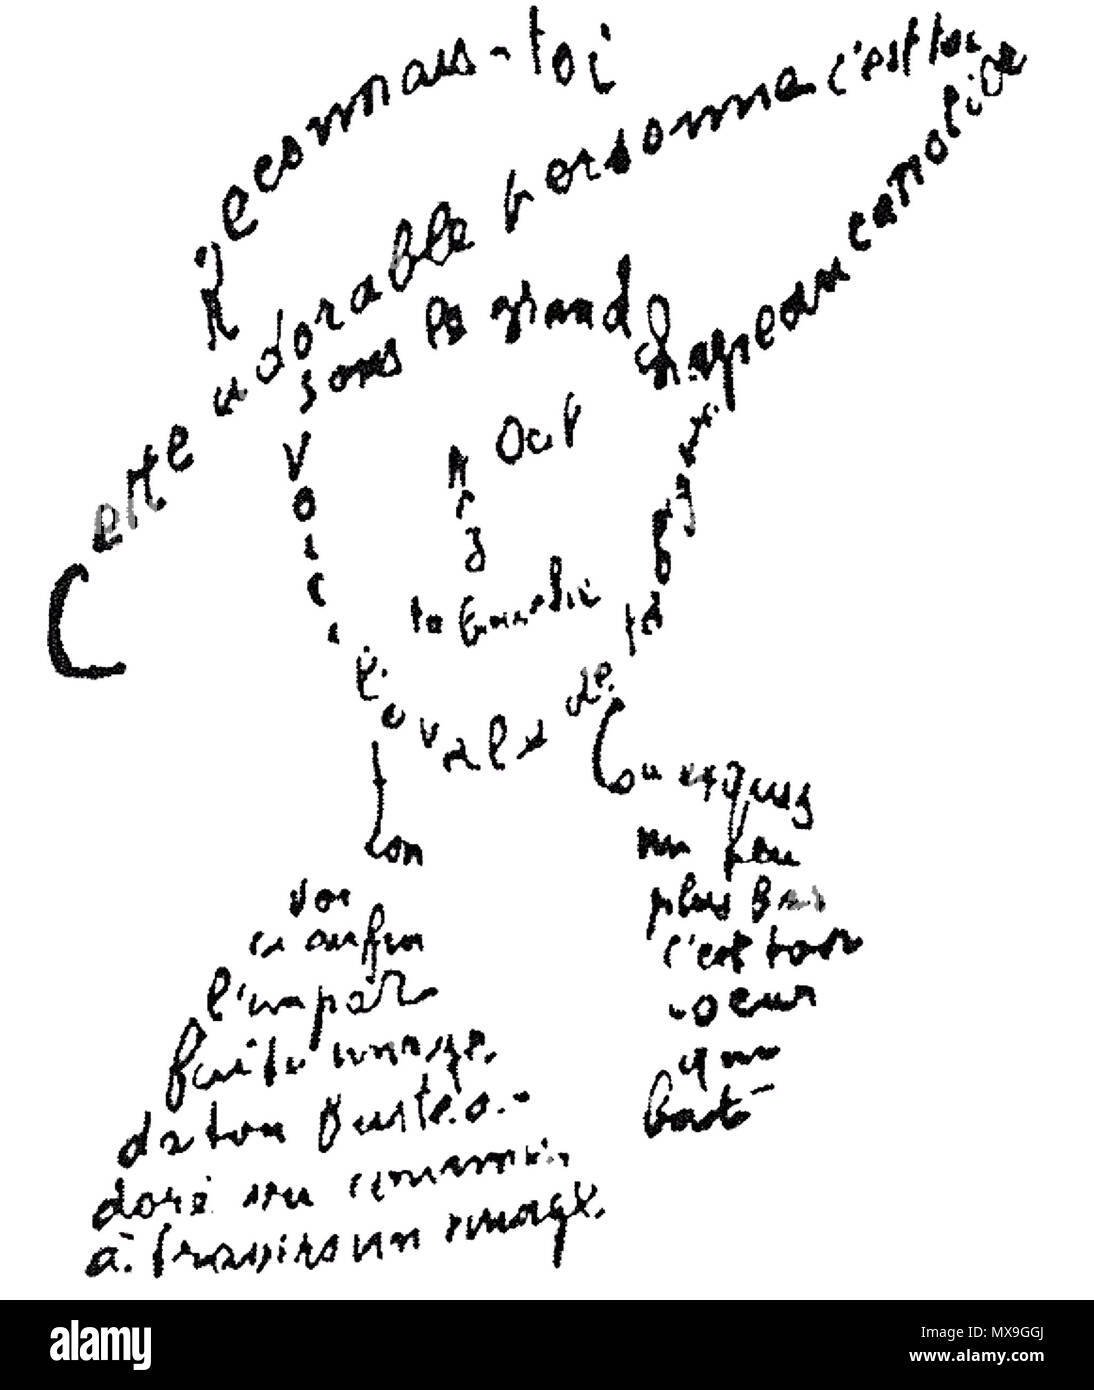 Reconnais-toi
Cette adorable personne c'est toi
sous le grand chapeau canotier
Oeil
Nez
ta bouche
Voici l'ovale de ta figure
ton
Cou
exquis
voi
ci enfin
l'impar
faite image
de ton buste a
doré vu comme
à travers un nuage
un peu
plus bas
c'est ton
coeur
qui
bat
a alamy
Image ID: MX9GGJ
www.alamy.com